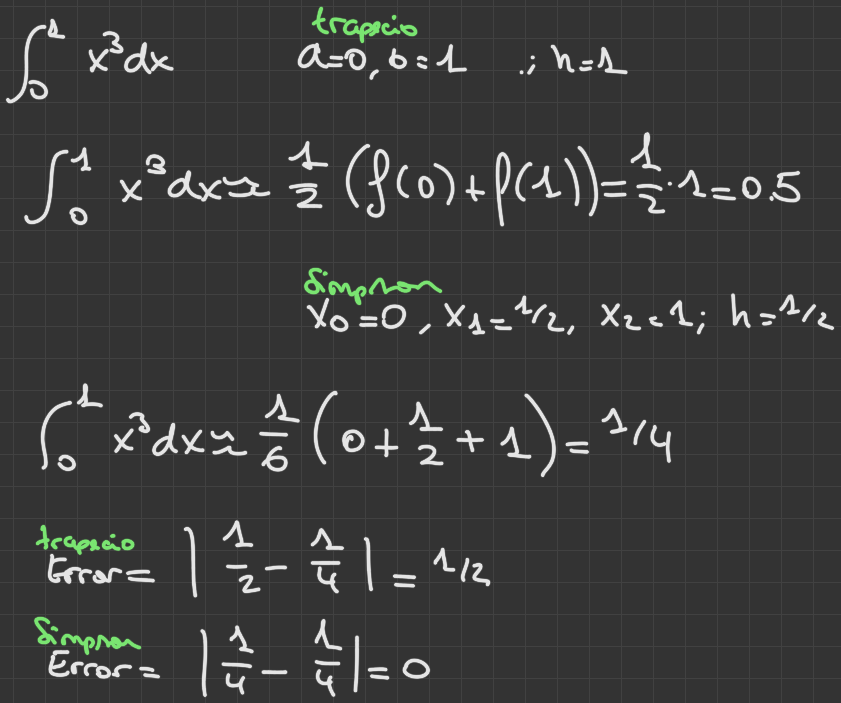 trapecio
∫₀¹ x³dx a=0, b=1 .; h=1
∫₀¹ x³dx ≈ 1/2 (f(0)+f(1)) = 1/2 · 1 = 0.5
Simpson
x₀=0, x₁=1/2, x₂=1; h=1/2
∫₀¹ x³dx ≈ 1/6 (0 + 1/2 + 1) = 1/4
trapecio
Error = | 1/2 - 1/4 | = 1/2
Simpson
Error = | 1/4 - 1/4 | = 0